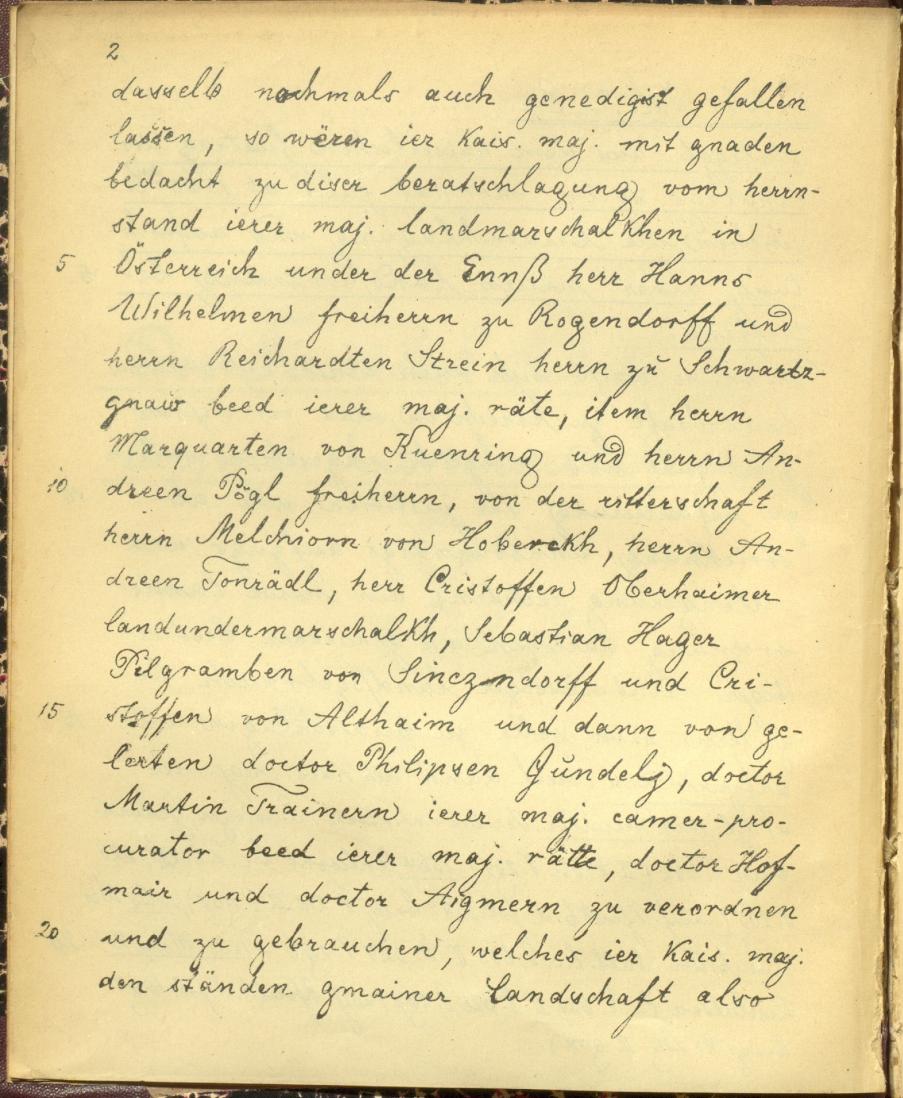 2
dasselb nochmals auch genedigist gefallen
lassen, so wëren ier kais. maj. mit gnaden
bedacht zu diser beratschlagung vom herrn-
stand ierer maj. landmarschalkhen in
5 Österreich under der Ennß herr Hanns
Wilhelmen freiherrn zu Rogendorff und
herrn Reichardten Strein herrn zu Schwartz-
gnaw beed ierer maj. räte, item herrn
Marquarten von Kuenring und herrn An-
10 dreen Pögl freiherrn, von der ritterschaft
herrn Melchiorn von Hoberckh, herrn An-
dreen Tonrädl, herr Cristoffen Oberhaimer
landundermarschalkh, Sebastian Hager
Pilgramben von Sinczendorff und Cri-
15 stoffen von Althaim und dann von ge-
lerten doctor Philipsen Gundelj, doctor
Martin Trainern ierer maj. camer-pro-
curator beed ierer maj. rätte, doctor Hof-
mair und doctor Aigmern zu verordnen
20 und zu gebrauchen, welches ier kais. maj.
den ständen gmainer landschaft also